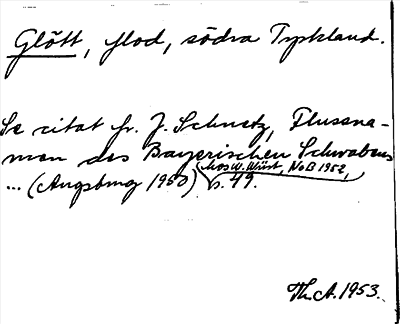 Glött, flod, södra Tyskland.
Se citat fr. J. Schnetz, Flussna-
men des Bayerischen Schwabens
... (Augsburg 1950) hos W. Wüst, NoB 1952,
s. 49.
Th. A. 1953.